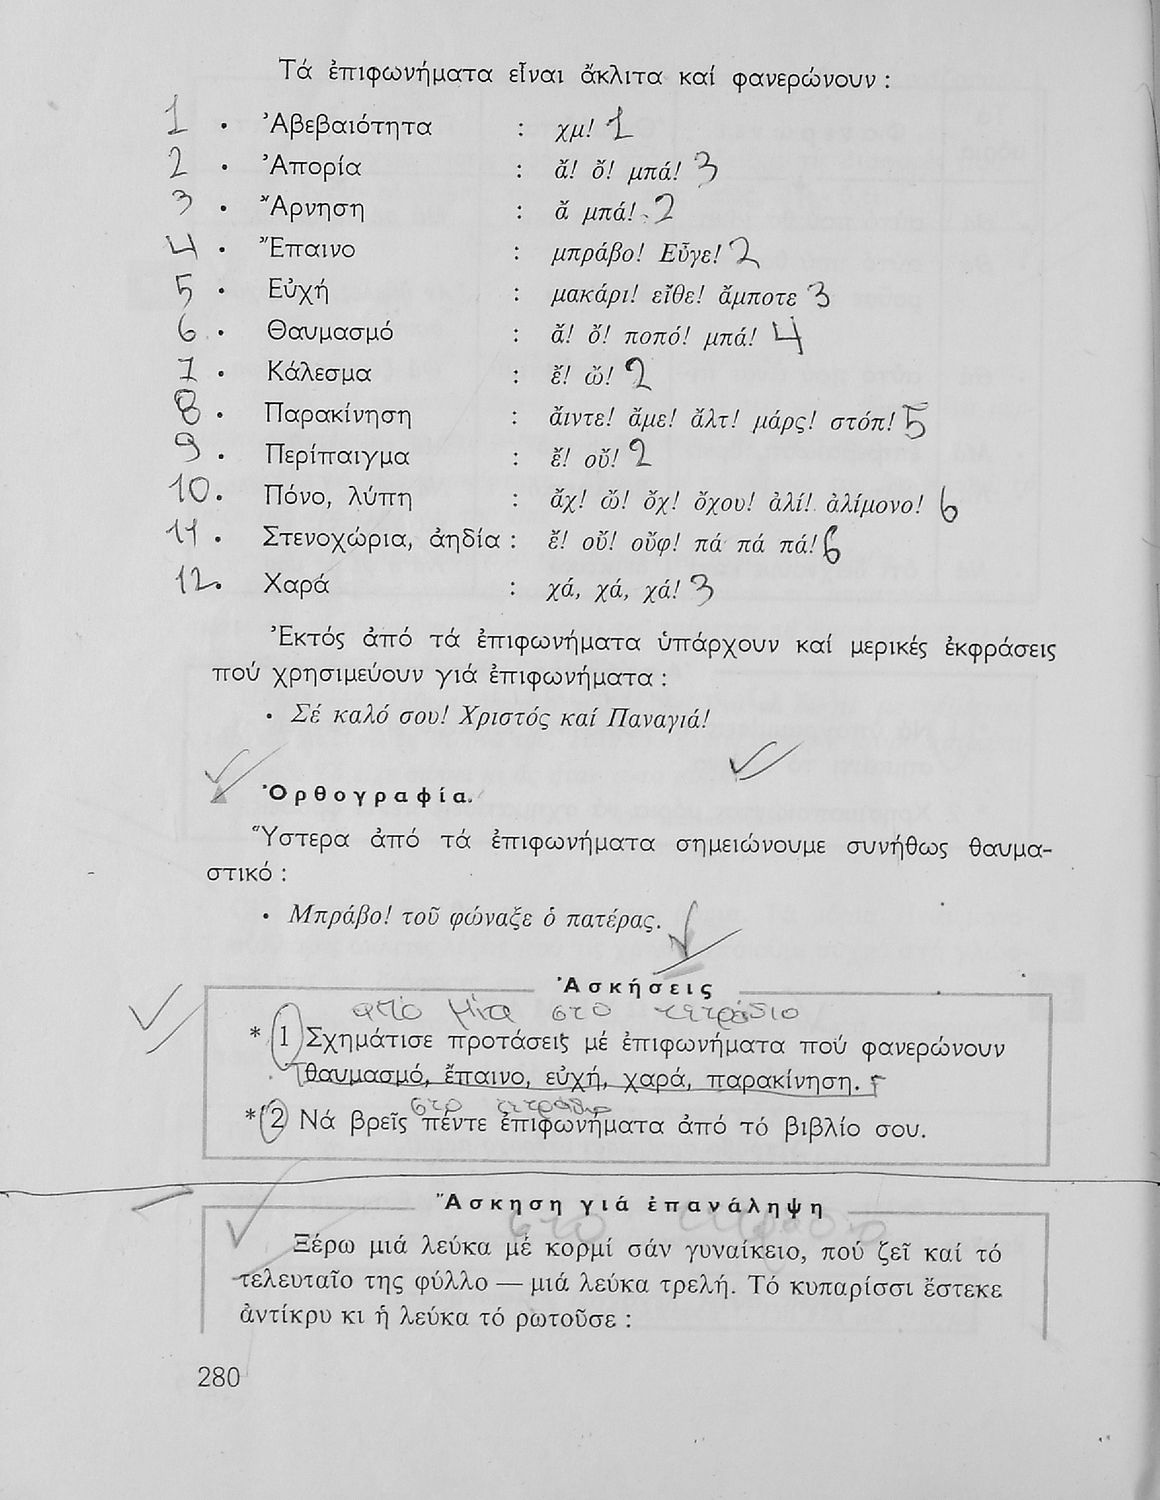 Τά ἐπιφωνήματα εἶναι ἄκλιτα καί φανερώνουν :
1 • Ἀβεβαιότητα : χμ! 1
2 • Ἀπορία : ἄ! ὄ! μπά! 3
3 • Ἄρνηση : ἄ μπά! 2
4 • Ἔπαινο : μπράβο! Εὖγε! 2
5 • Εὐχή : μακάρι! εἴθε! ἄμποτε 3
6 • Θαυμασμό : ἄ! ὄ! ποπό! μπά! 4
7 • Κάλεσμα : ἔ! ὤ! 2
8 • Παρακίνηση : ἄιντε! ἄμε! ἄλτ! μάρς! στόπ! 5
9 • Περίπαιγμα : ἔ! οὔ! 2
10. • Πόνο, λύπη : ἄχ! ὤ! ὄχ! ὄχου! ἀλί! ἀλίμονο! 6
11 • Στενοχώρια, ἀηδία : ἔ! οὔ! οὔφ! πά πά πά! 6
12 • Χαρά : χά, χά, χά! 3
Ἐκτός ἀπό τά ἐπιφωνήματα ὑπάρχουν καί μερικές ἐκφράσεις
πού χρησιμεύουν γιά ἐπιφωνήματα :
• Σέ καλό σου! Χριστός καί Παναγιά!
Ὀρθογραφία.
Ὕστερα ἀπό τά ἐπιφωνήματα σημειώνουμε συνήθως θαυμα-
στικό :
• Μπράβο! τοῦ φώναξε ὁ πατέρας.
Ἀσκήσεις
από μία στο τετράδιο
* 1 Σχημάτισε προτάσεις μέ ἐπιφωνήματα πού φανερώνουν
θαυμασμό, ἔπαινο, εὐχή, χαρά, παρακίνηση.
στο τετράδιο
* 2 Νά βρεῖς πέντε ἐπιφωνήματα ἀπό τό βιβλίο σου.
Ἄσκηση γιά ἐπανάληψη
στο τετράδιο
Ξέρω μιά λεύκα μέ κορμί σάν γυναίκειο, πού ζεῖ καί τό
τελευταῖο της φύλλο — μιά λεύκα τρελή. Τό κυπαρίσσι ἔστεκε
ἀντίκρυ κι ἡ λεύκα τό ρωτοῦσε :
280